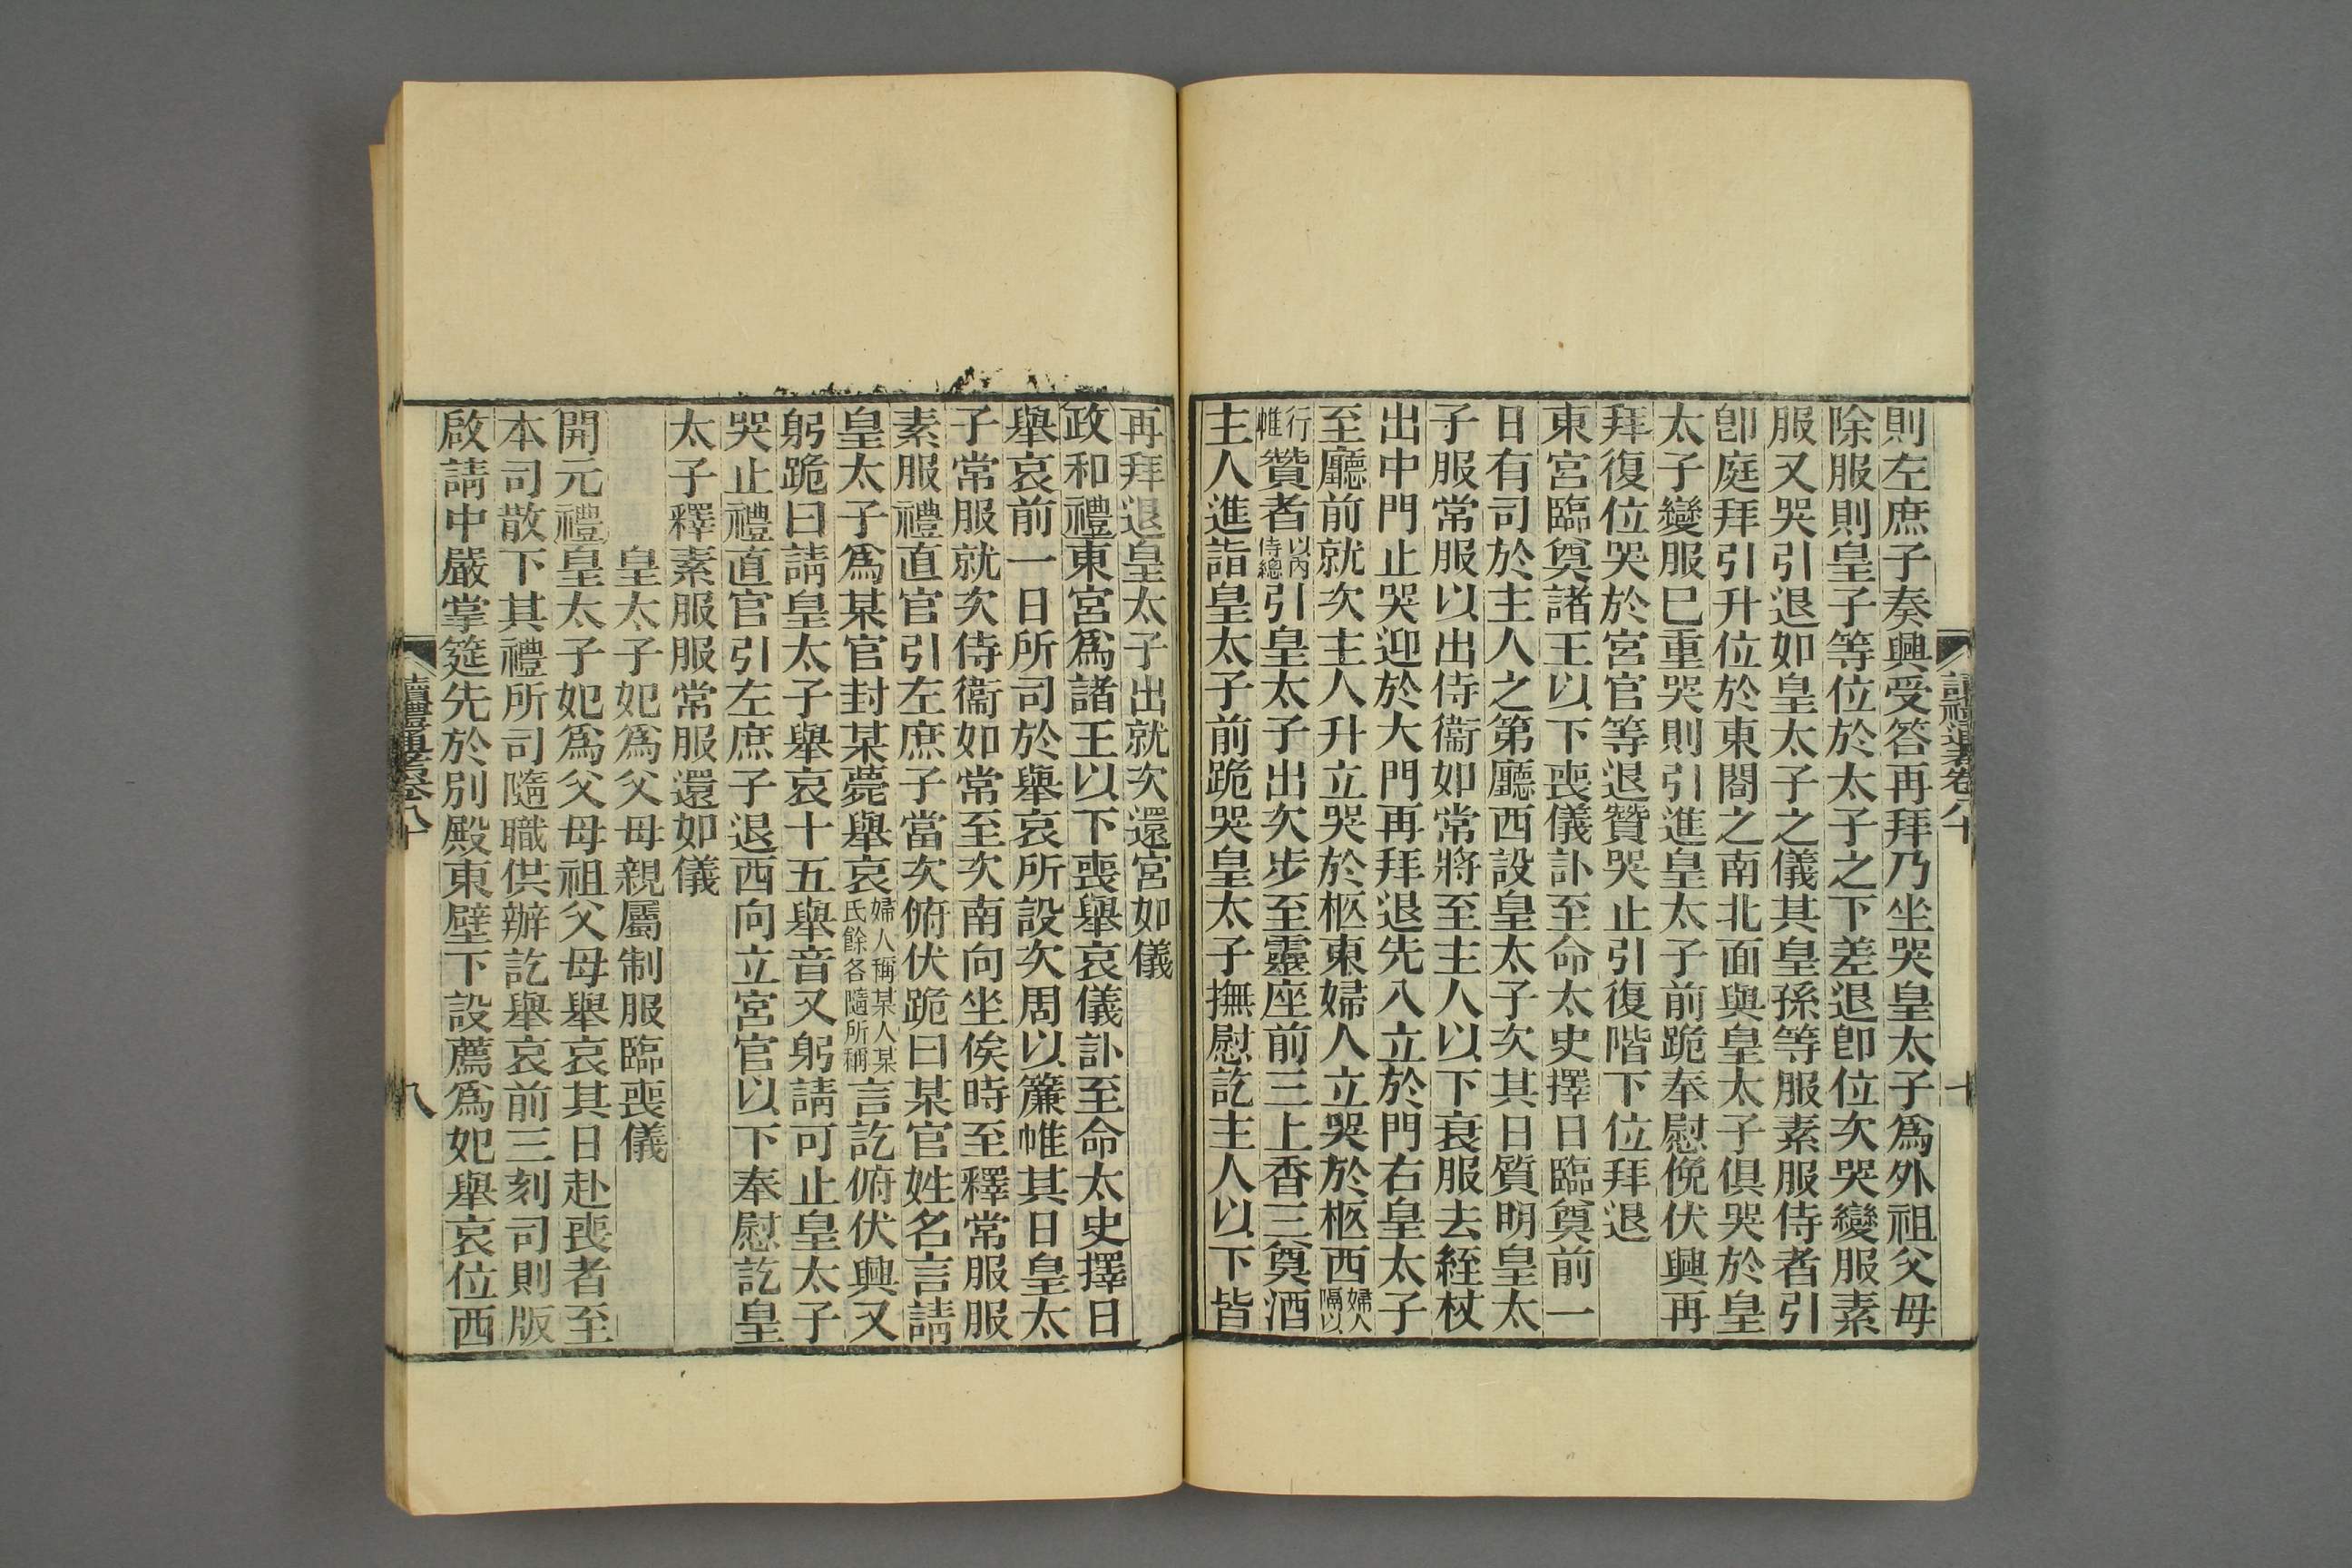 則左庶子奏興受答再拜乃坐哭皇太子爲外祖父母
除服則皇子等位於太子之下差退卽位次哭變服素
服又哭引退如皇太子之儀其皇孫等服素服侍者引
卽庭拜引升位於東閤之南北面與皇太子俱哭於皇
太子變服巳重哭則引進皇太子前跪奉慰俛伏興再
拜復位哭於宮官等退贊哭止引復階下位拜退
東宮臨奠諸王以下喪儀訃至命太史擇日臨奠前一
日有司於主人之第廳西設皇太子次其日質明皇太
子服常服以出侍衞如常將至主人以下衰服去絰杖
出中門止哭迎於大門再拜退先入立於門右皇太子
至廳前就次主人升立哭於柩東婦人立哭於柩西婦人隔以
行帷贊者以內侍總引皇太子出次步至靈座前三上香三奠酒
主人進詣皇太子前跪哭皇太子撫慰訖主人以下皆
再拜退皇太子出就次還宮如儀
政和禮東宮爲諸王以下喪舉哀儀訃至命太史擇日
舉哀前一日所司於舉哀所設次周以簾帷其日皇太
子常服就次侍衞如常至次南向坐俟時至釋常服服
素服禮直官引左庶子當次俯伏跪曰某官姓名言請
皇太子爲某官封某薨舉哀婦人稱某人某氏餘各隨所稱言訖俯伏興又
躬跪曰請皇太子舉哀十五舉音又躬請可止皇太子
哭止禮直官引左庶子退西向立宮官以下奉慰訖皇
太子釋素服服常服還如儀
皇太子妃爲父母親屬制服臨喪儀
開元禮皇太子妃爲父母祖父母舉哀其日赴喪者至
本司散下其禮所司隨職供辦訖舉哀前三刻司則版
啟請中嚴掌筵先於別殿東壁下設薦爲妃舉哀位西
讀禮通考卷八十
八